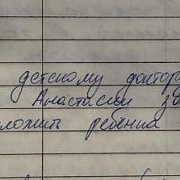 детскому доктору
Анастасии за
ложить ребенка